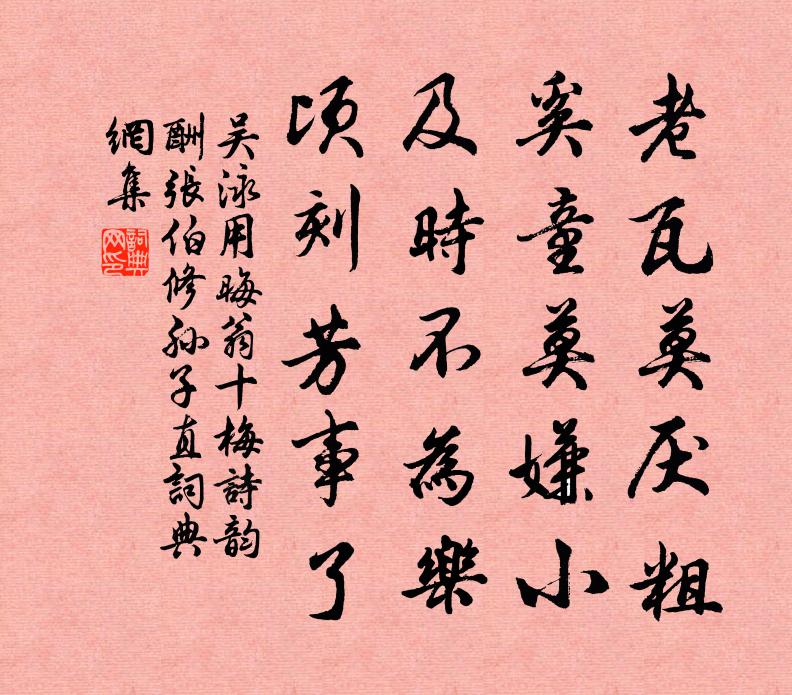 老瓦莫厌粗
奚童莫嫌小
及時不為樂
頃刻芳事了
吴泳用晦翁十梅詩韵
酬張伯修孙子直詞典
網集
詞典網印